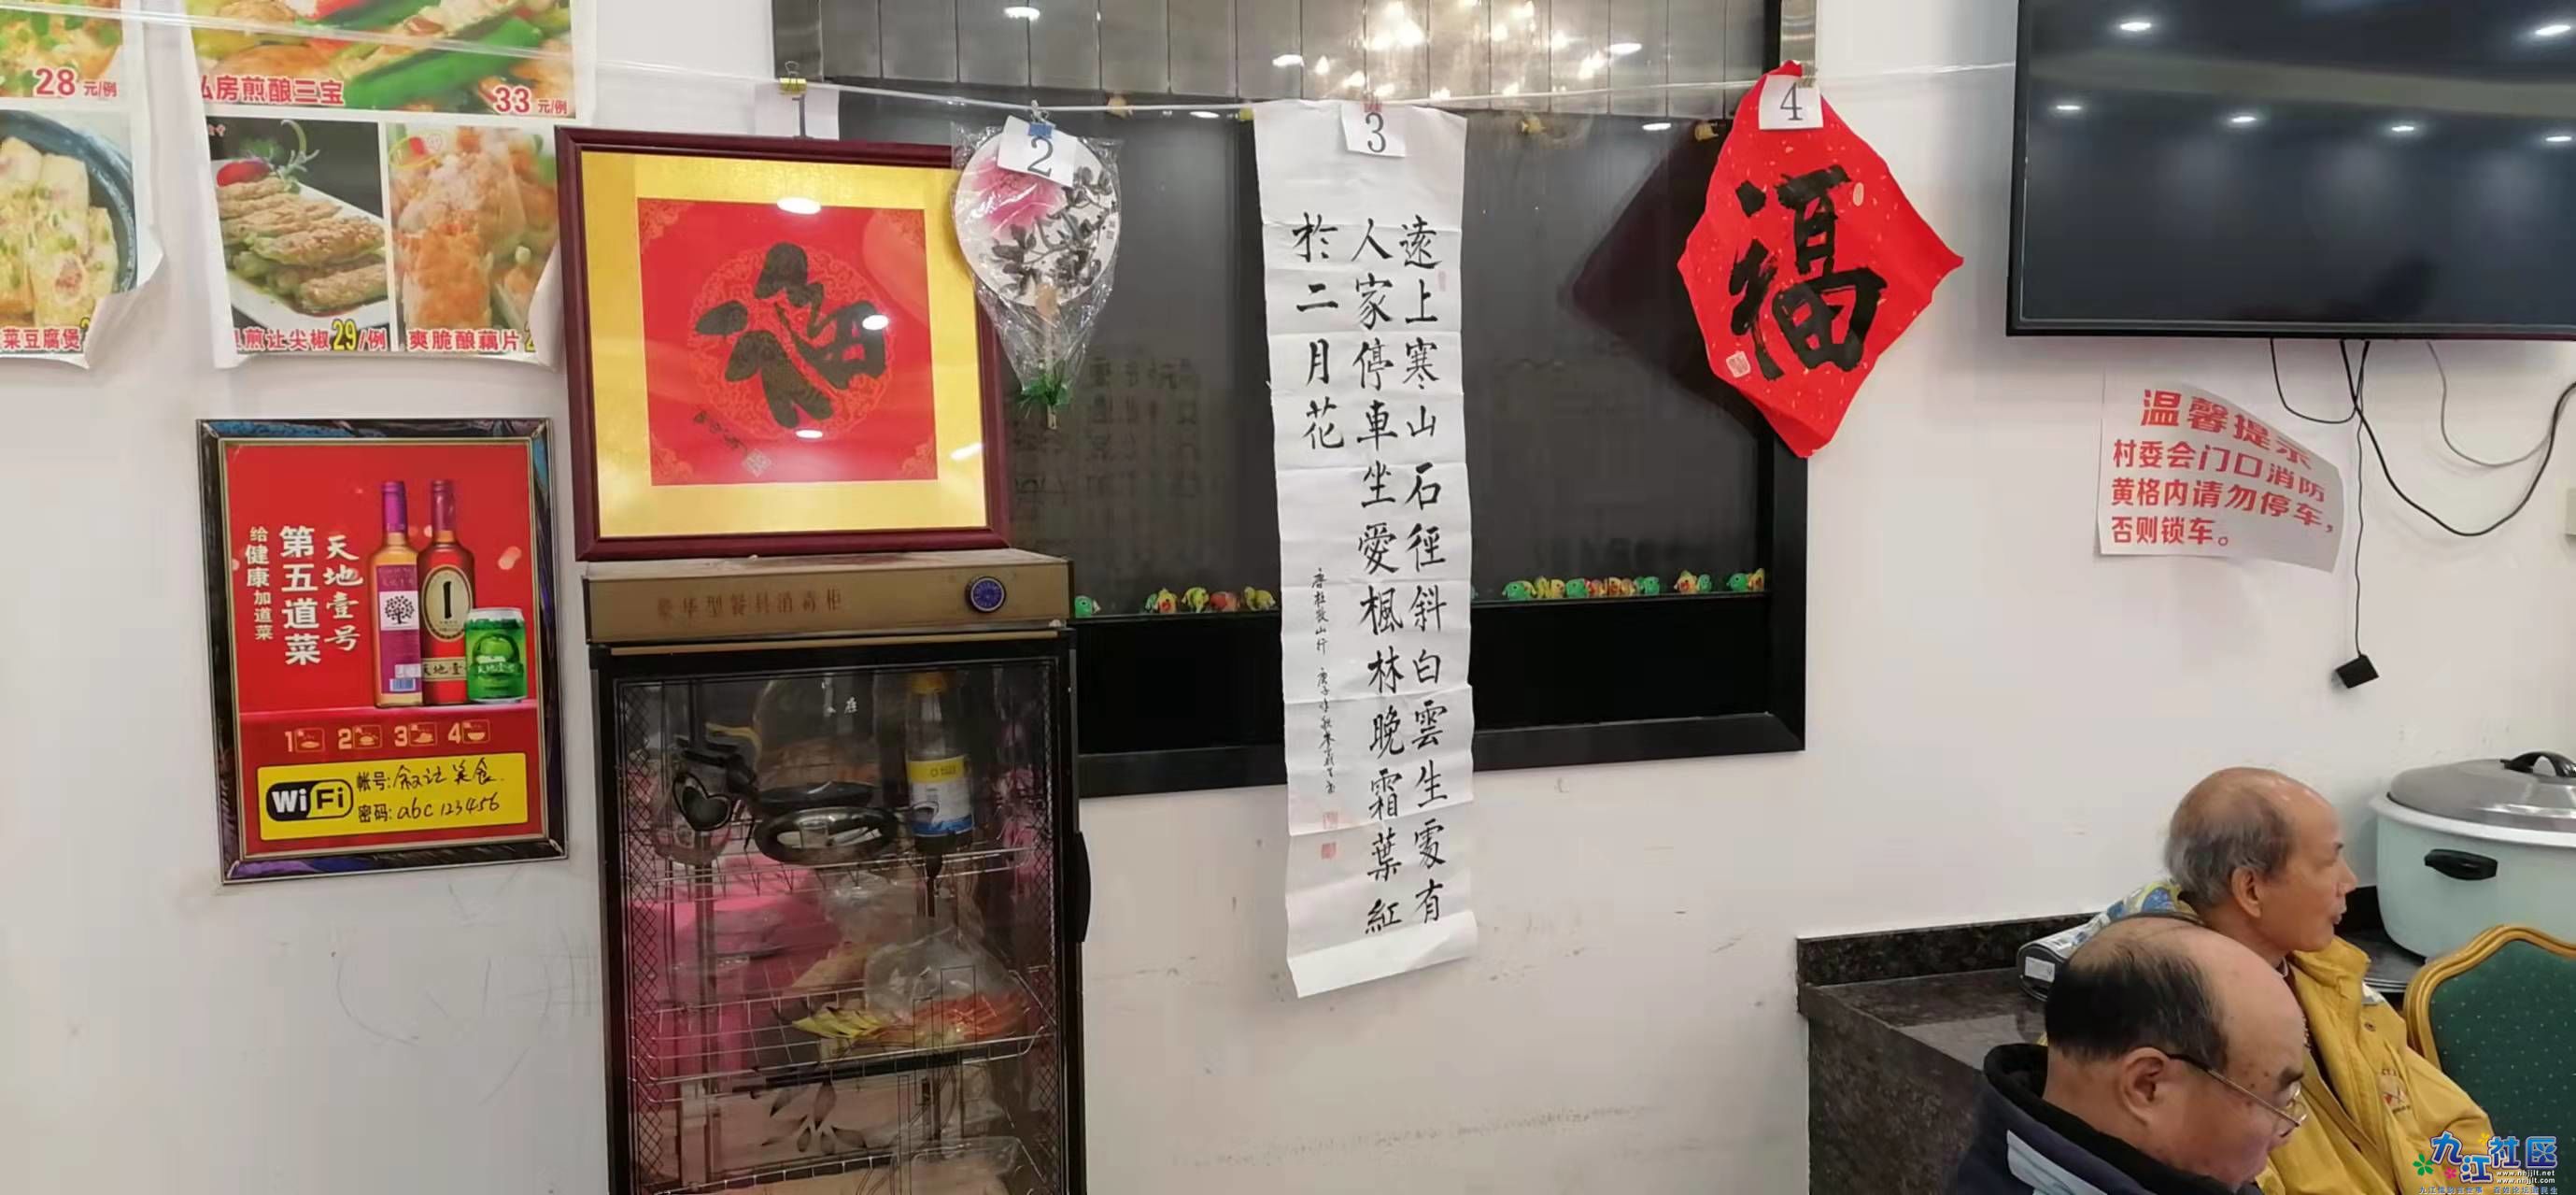 28元/例
私房煎酿三宝
33元/例
菜豆腐煲
煎让尖椒29/例
爽脆酿藕片
给健康加道菜
第五道菜
天地壹号
天地壹号
1 2 3 4
WiFi
帐号:叙让美食
密码:abc123456
福
豪华型餐具消毒柜
2
3
遠上寒山石徑斜白雲生處有
人家停車坐愛楓林晚霜葉紅
於二月花
唐杜牧山行
4
福
温馨提示
村委会门口消防
黄格内请勿停车,
否则锁车。
九江社区
www.nhjjlt.net